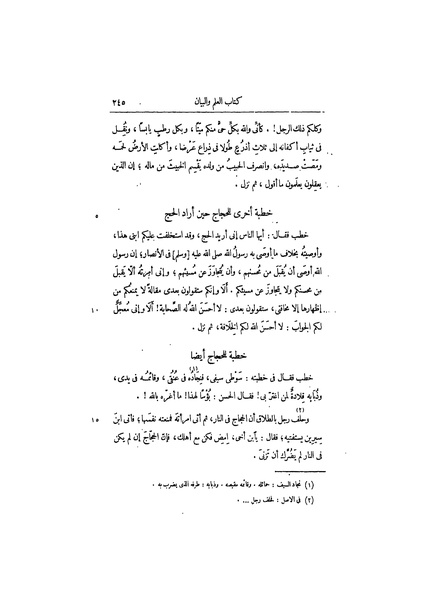 كتاب العلم والبيان ٢٤٥
وكلكم ذلك الرجل! . كأنى والله بكلّ حىّ منكم ميّتا ، وبكل رطب يابسا ، ونُقِل
فى ثياب أكفانه إلى ثلاث أذرُع طُولا فى ذراع عَرضا ، وأكلت الأرضُ لحمَه
ومَصّت صديدَه، وانصرف الحبيبُ من ولده يَقْسِم الخبيثَ من ماله ؛ إن الذين
يعقلون يعلمون ما أقول ، ثم نزل .
خطبة أخرى للحجاج حين أراد الحج ٥
خطب فقال : أيها الناس إنى أريد الحج ، وقد استخلفت عليكم ابنى هذا،
وأوصيته بخلاف ما أوصَى به رسولُ الله صلى الله عليه [وسلم] فى الأنصار؛ إن رسول
الله أوصى أن يُقبَل من مُحسنهم ، وأن يُتَجاوَزَ عن مُسيئهم ؛ وإنى أوصيتُه ألّا يقبل
من محسنكم ولا يتجاوز عن مسيئكم . ألا وإنكم ستقولون بعدى مقالةً لا يمنعكم من
إظهارها إلا مخافتى ، ستقولون بعدى : لا أحسَنَ اللهُ له الصَّحابة! ألَا وإنى معجّلٌ ١٠
لكم الجوابَ : لا أحسَنَ الله لكم الخِلافة ، ثم نزل .
خطبة للحجاج أيضا
خطب فقال فى خطبته : سَوْطى سيفى، فنِجادُه(١) فى عُنُقى ، وقائمُه فى يدى،
وذُبابه قِلادةٌ لمن اغترّ بى! فقال الحسن : بُؤسًا لهذا! ما أغرّه بالله ! .
وحلف(٢) رجل بالطلاق أن الحجاج فى النار، ثم أتى امرأتَه فمنعته نفسَها؛ فأتى ابنَ ١٥
سيرين يستفتيه؛ فقال : يابن أخى، امضِ فكن مع أهلك، فإن الحجّاجَ إن لم يكن
فى النار لم يَضُرَّك أن تزنىَ .
(١) نجاد السيف : حمائله . وقائمه مقبضه . وذبابه : طرفه الذى يضرب به .
(٢) فى الأصل : لحلف رجل ... .